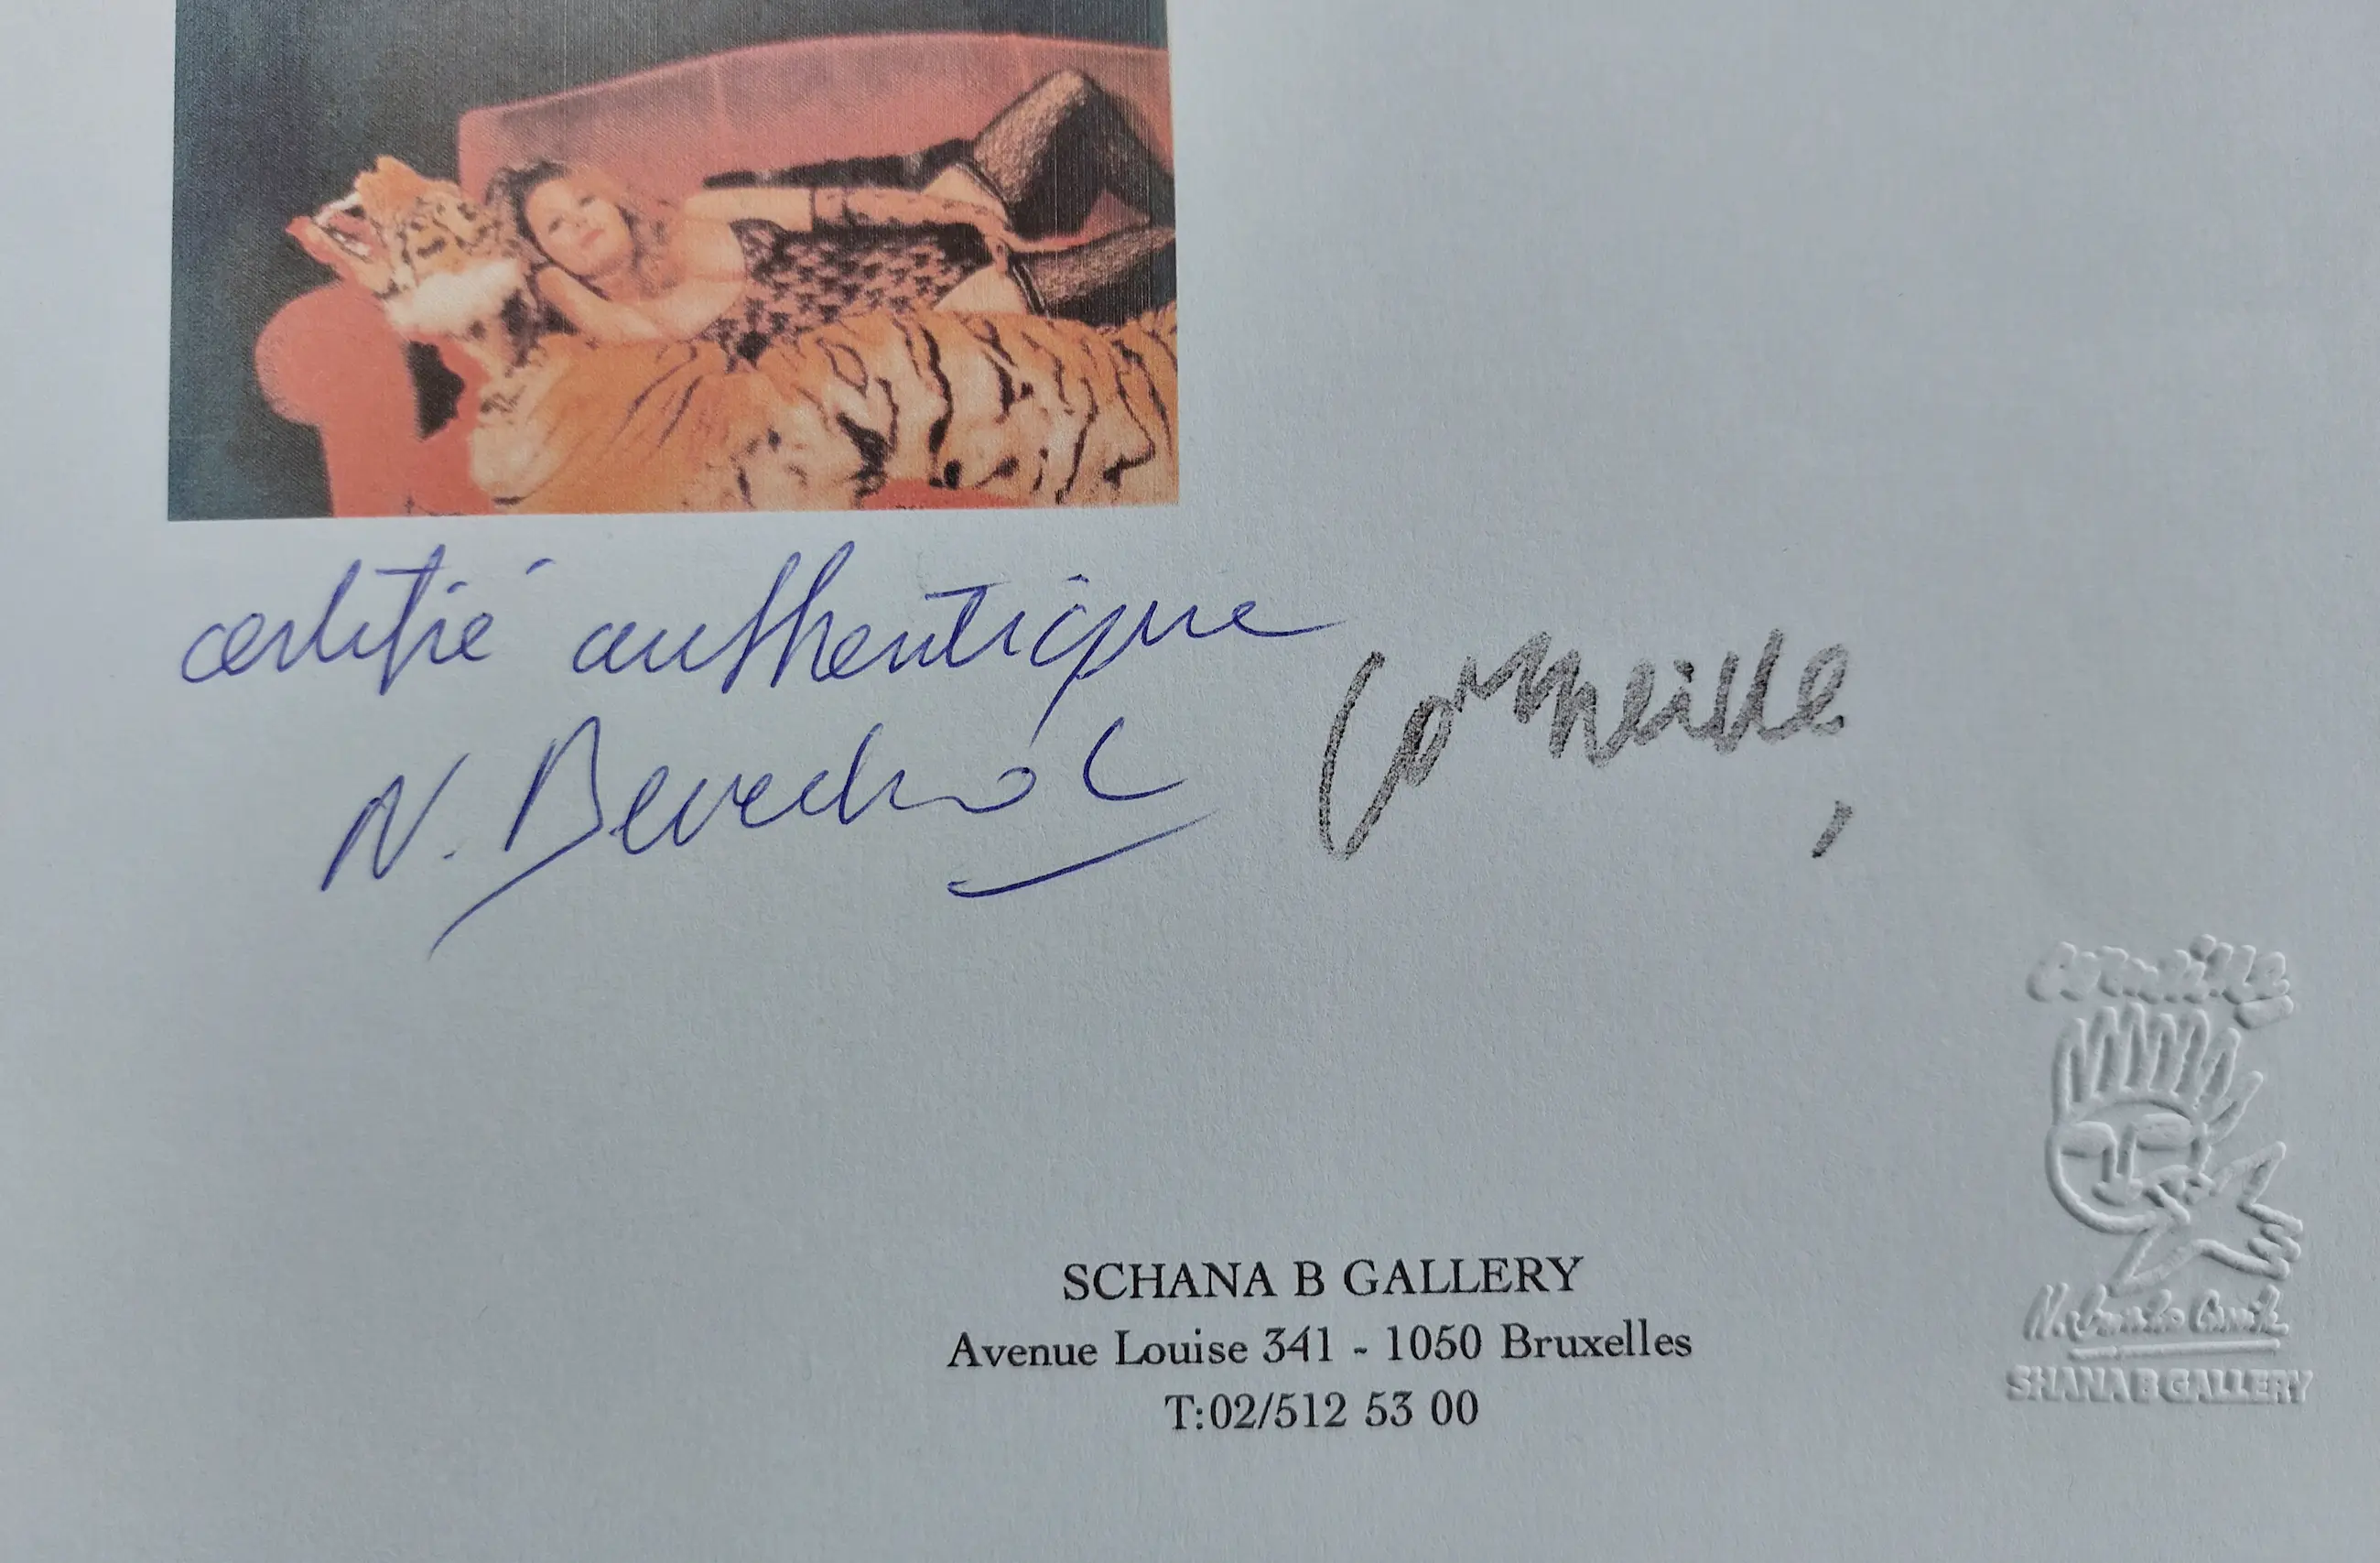 certifié authentique
Corneille
N.
SCHANA B GALLERY
Avenue Louise 341 - 1050 Bruxelles
T:02/512 53 00
Corneille
SHANA B GALLERY